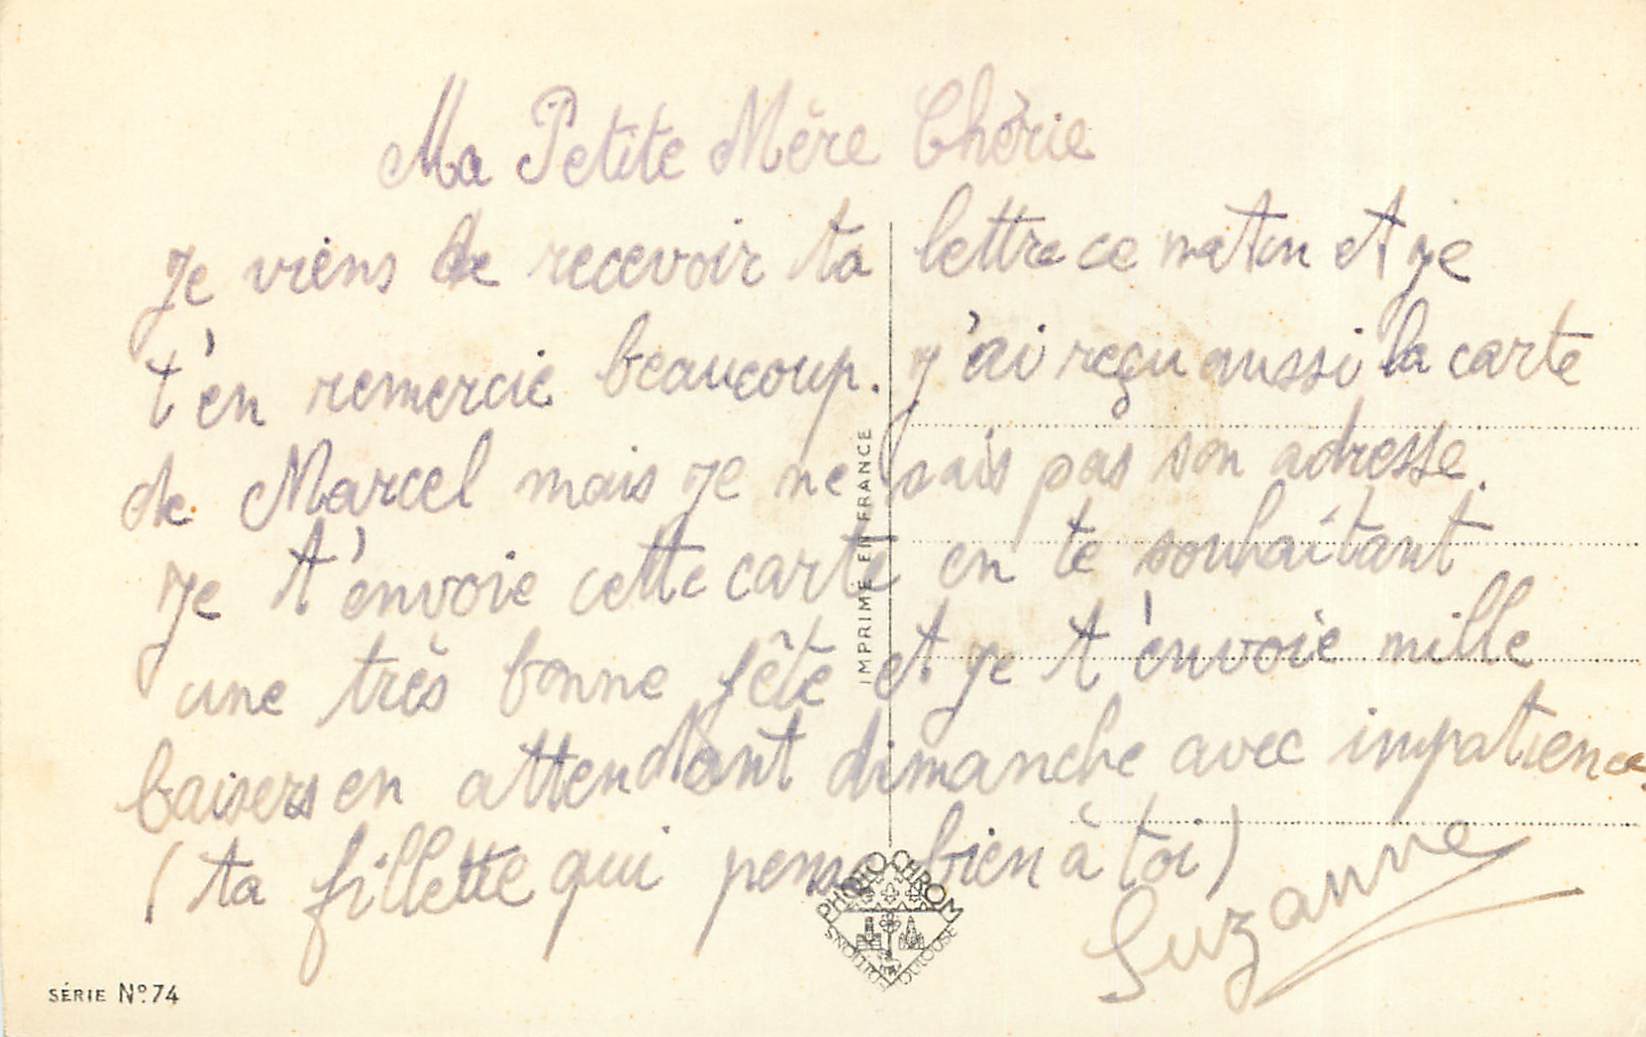 Ma Petite Mère Chérie
Je viens de recevoir ta lettre ce matin et je
t'en remercie beaucoup. j'ai reçu aussi la carte
de Marcel mais je ne sais pas son adresse.
Je t'envoie cette carte en te souhaitant
une très bonne fête et je t'envoie mille
baisers en attendant dimanche avec impatience.
(ta fillette qui pense bien à toi)
Suzanne
IMPRIMÉ EN FRANCE
PHOTOCHROM
EDITIONS TOULOUSE
SÉRIE Nº 74